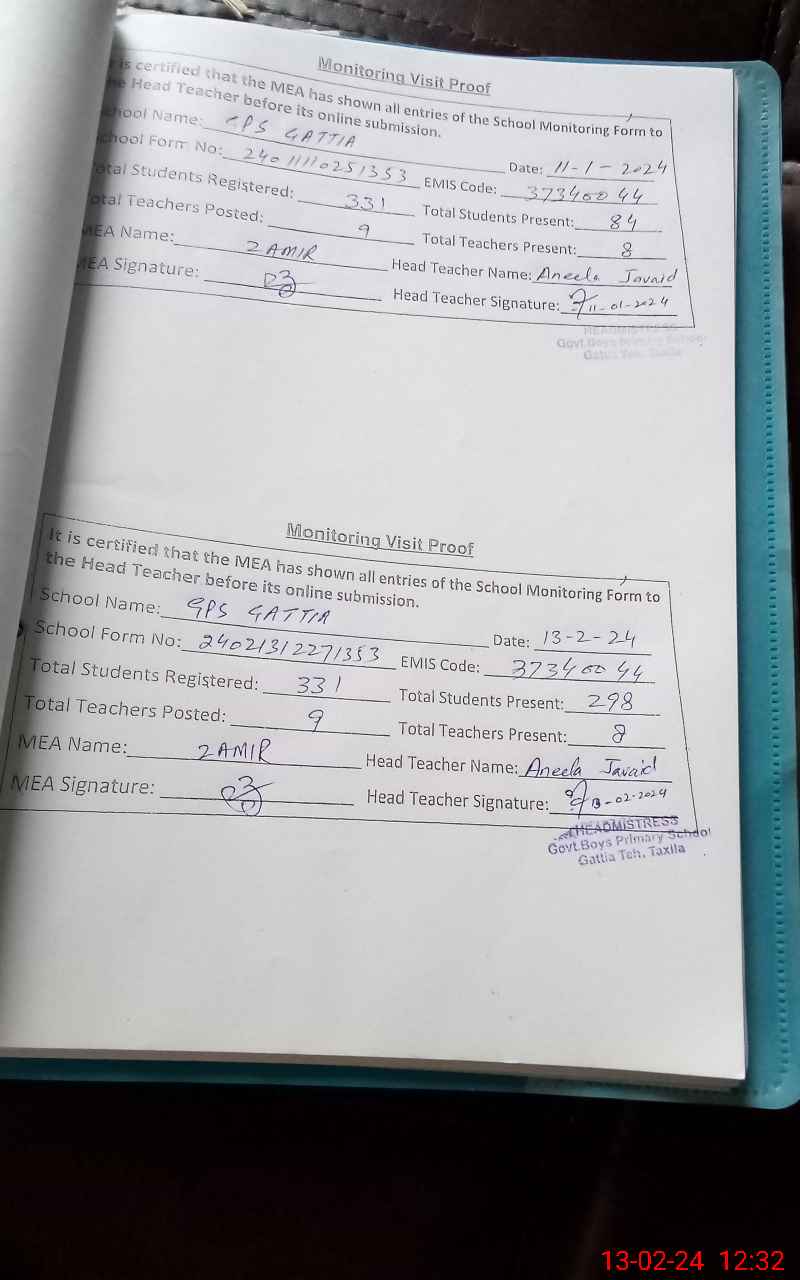 Monitoring Visit Proof
is certified that the MEA has shown all entries of the School Monitoring Form to
the Head Teacher before its online submission.
School Name: GPS GATTIA Date: 11-1-2024
School Form No: 24011110251353 EMIS Code: 37340044
Total Students Registered: 331 Total Students Present: 84
Total Teachers Posted: 9 Total Teachers Present: 8
MEA Name: ZAMIR Head Teacher Name: Aneela Javaid
MEA Signature: Head Teacher Signature: 11-01-2024
HEADMISTRESS
Govt.Boys Primary School
Gattia Teh. Taxila
Monitoring Visit Proof
It is certified that the MEA has shown all entries of the School Monitoring Form to
the Head Teacher before its online submission.
School Name: GPS GATTIA Date: 13-2-24
School Form No: 24021312271353 EMIS Code: 37340044
Total Students Registered: 331 Total Students Present: 298
Total Teachers Posted: 9 Total Teachers Present: 8
MEA Name: ZAMIR Head Teacher Name: Aneela Javaid
MEA Signature: Head Teacher Signature: 13-02-2024
HEADMISTRESS
Govt.Boys Primary School
Gattia Teh. Taxila
13-02-24 12:32